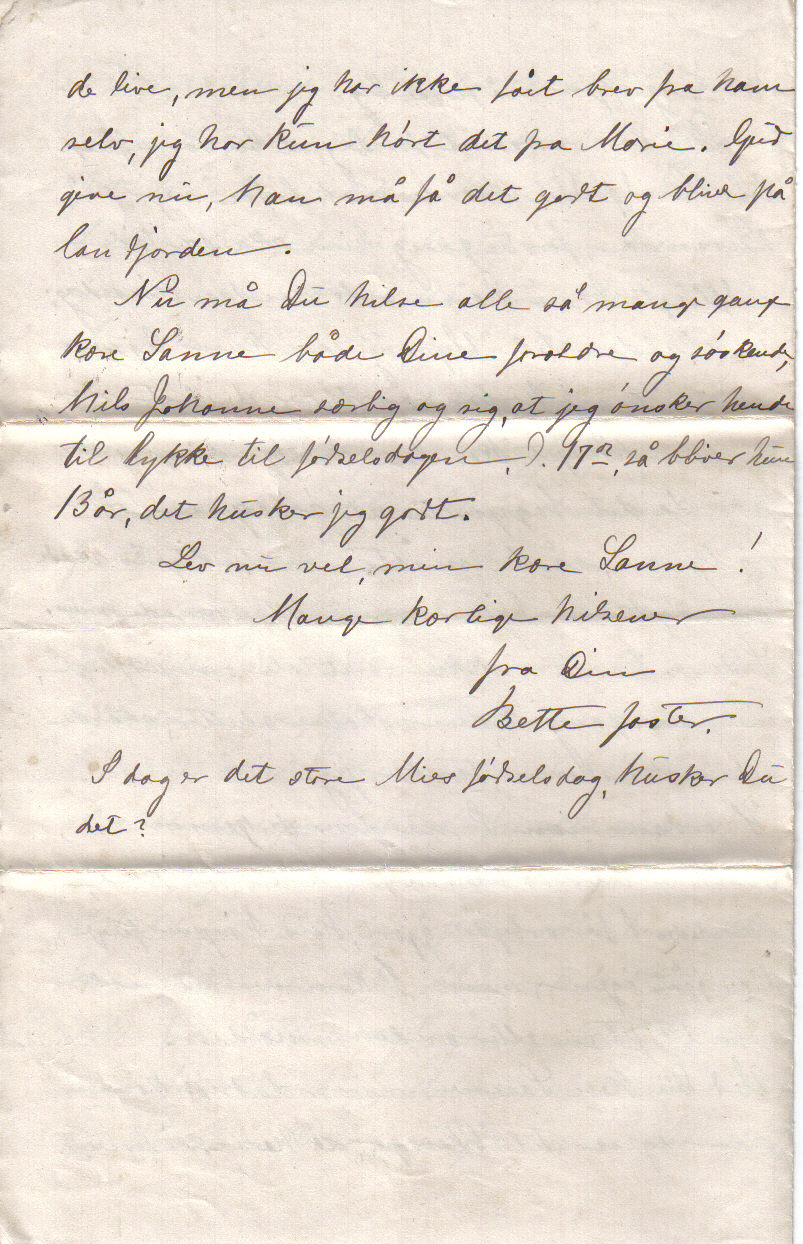 de live, men jeg har ikke fåit brev fra ham
selv, jeg har kun hórt det fra Marie. Gud
give nu, han må få det godt og blive på
landjorden.
Nu må Du hilse alle så mange gange
kære Sanne både Dine forældre og sóskende,
hils Johanne særlig og sig, at jeg ónsker hende
til lykke til fódselsdagen, d. 17de, så bliver hun
13 år, det husker jeg godt.
Lev nu vel, min kære Sanne!
Mange kærlige hilsener
fra Din
Bette faster.
I dag er det store Mies fódselsdag, husker Du
det?